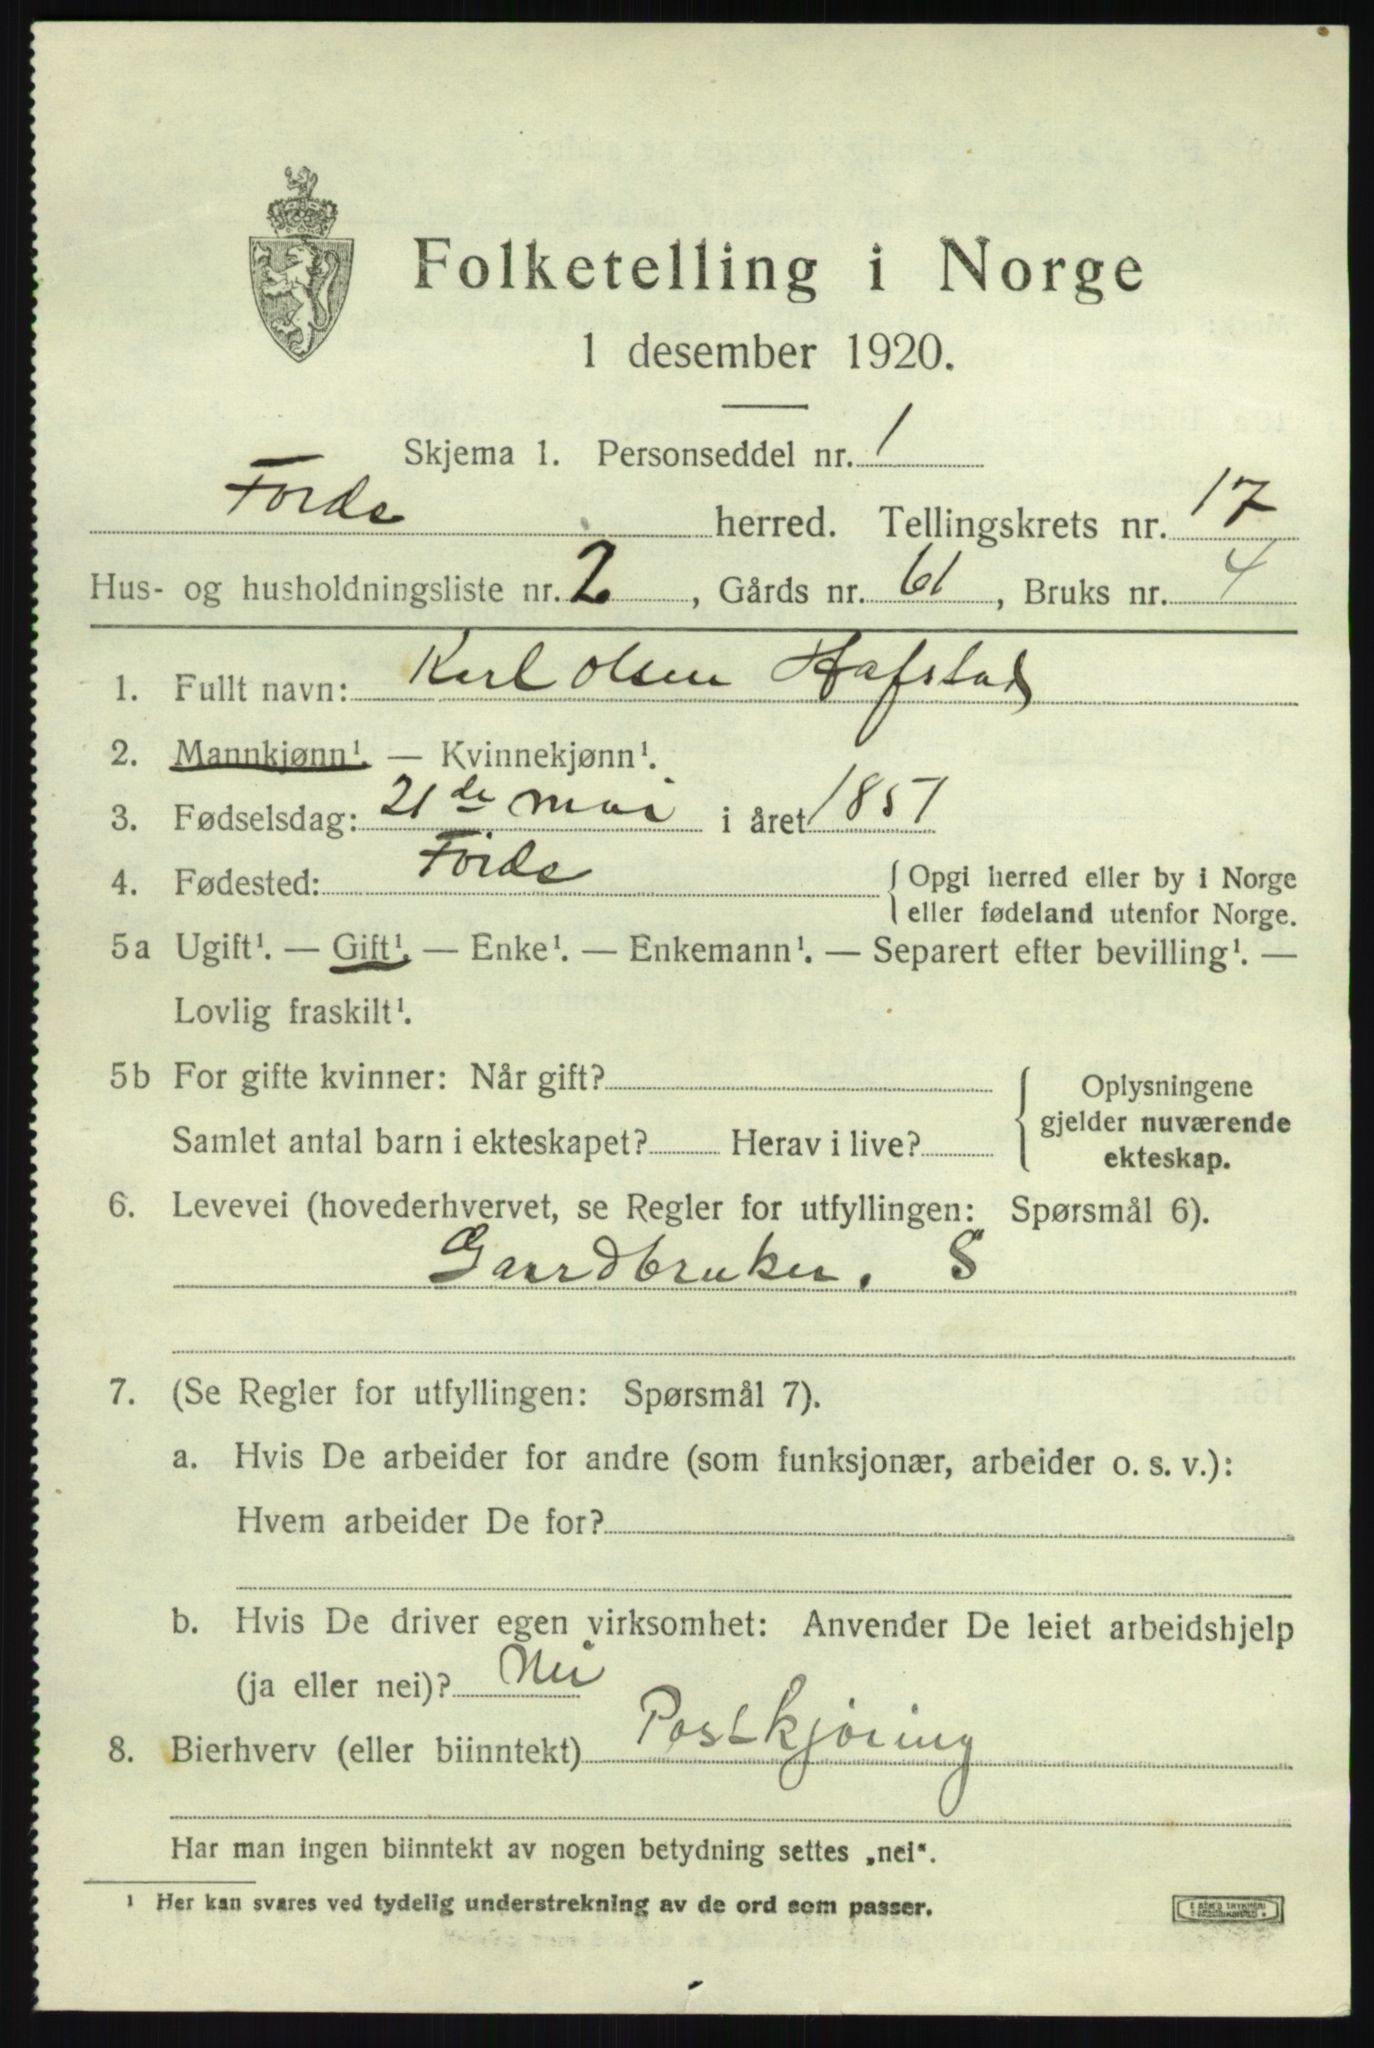 Folketelling i Norge
1 desember 1920.
Skjema 1. Personseddel nr. 1
Førde herred. Tellingskrets nr. 17
Hus- og husholdningsliste nr. 2, Gårds nr. 61, Bruks nr. 4
1. Fullt navn: Karl Olsen Hafstad
2. Mannkjønn¹. — Kvinnekjønn¹.
3. Fødselsdag: 21de mai i året 1857
4. Fødested: Førde { Opgi herred eller by i Norge
eller fødeland utenfor Norge.
5a Ugift¹. — Gift¹. — Enke¹. — Enkemann¹. — Separert efter bevilling¹. —
Lovlig fraskilt¹.
5b For gifte kvinner: Når gift? { Oplysningene
gjelder nuværende
Samlet antal barn i ekteskapet? Herav i live? ekteskap.
6. Levevei (hovederhvervet, se Regler for utfyllingen: Spørsmål 6).
Gaardbruker. S
7. (Se Regler for utfyllingen: Spørsmål 7).
a. Hvis De arbeider for andre (som funksjonær, arbeider o. s. v.):
Hvem arbeider De for?
b. Hvis De driver egen virksomhet: Anvender De leiet arbeidshjelp
(ja eller nei)? Nei
8. Bierhverv (eller biinntekt) Postkjøring
Har man ingen biinntekt av nogen betydning settes „nei“.
¹ Her kan svares ved tydelig understrekning av de ord som passer.